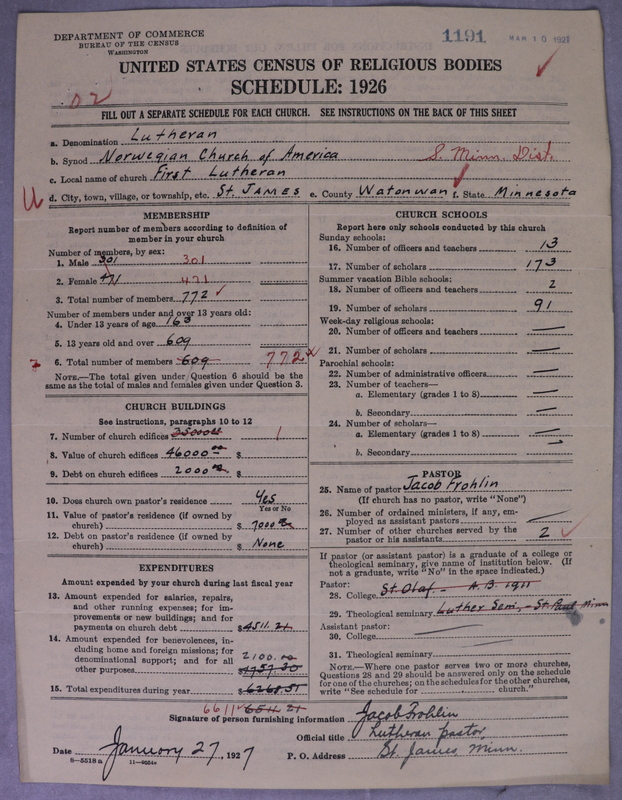 DEPARTMENT OF COMMERCE
BUREAU OF THE CENSUS
WASHINGTON
1191
MAR 10 1927
UNITED STATES CENSUS OF RELIGIOUS BODIES
SCHEDULE: 1926
02
FILL OUT A SEPARATE SCHEDULE FOR EACH CHURCH. SEE INSTRUCTIONS ON THE BACK OF THIS SHEET
a. Denomination Lutheran
b. Synod Norwegian Church of America S. Minn. Dist.
c. Local name of church First Lutheran
d. City, town, village, or township, etc. St. James e. County Watonwan f. State Minnesota
MEMBERSHIP
Report number of members according to definition of
member in your church
Number of members, by sex:
1. Male 301 301
2. Female 471 471
3. Total number of members 772
Number of members under and over 13 years old:
4. Under 13 years of age 163
5. 13 years old and over 609
6. Total number of members 609 772
NOTE.—The total given under Question 6 should be
same as the total of males and females given under Question 3.
CHURCH BUILDINGS
See instructions, paragraphs 10 to 12
7. Number of church edifices 1
8. Value of church edifices 46000.00 $
9. Debt on church edifices 2000.00 $
10. Does church own pastor's residence Yes
Yes or No
11. Value of pastor's residence (if owned by
church) $ 7000.00
12. Debt on pastor's residence (if owned by
church) $ None
EXPENDITURES
Amount expended by your church during last fiscal year
13. Amount expended for salaries, repairs,
and other running expenses; for im-
provements or new buildings; and for
payments on church debt $4511.21
14. Amount expended for benevolences, in-
cluding home and foreign missions; for
denominational support; and for all 2100.00
other purposes $1757.30
15. Total expenditures during year $6268.51
6611 6511 21
CHURCH SCHOOLS
Report here only schools conducted by this church
Sunday schools:
16. Number of officers and teachers 13
17. Number of scholars 173
Summer vacation Bible schools:
18. Number of officers and teachers 2
19. Number of scholars 91
Week-day religious schools:
20. Number of officers and teachers —
21. Number of scholars —
Parochial schools:
22. Number of administrative officers —
23. Number of teachers—
a. Elementary (grades 1 to 8) —
b. Secondary —
24. Number of scholars—
a. Elementary (grades 1 to 8) —
b. Secondary —
PASTOR
25. Name of pastor Jacob Frohlin
(If church has no pastor, write "None")
26. Number of ordained ministers, if any, em-
ployed as assistant pastors —
27. Number of other churches served by the
pastor or his assistants 2
If pastor (or assistant pastor) is a graduate of a college or
theological seminary, give name of institution below. (If
not a graduate, write "No" in the space indicated.)
Pastor:
28. College St. Olaf - A.B. 1911
29. Theological seminary Luther Sem, - St Paul Minn
Assistant pastor:
30. College
31. Theological seminary
NOTE.—Where one pastor serves two or more churches,
Questions 28 and 29 should be answered only on the schedule
for one of the churches; on the schedules for the other churches,
write "See schedule for church."
Signature of person furnishing information Jacob Frohlin
Official title Lutheran pastor,
Date January 27, 1927 P. O. Address St. James Minn.
8—5518a 11—9054a